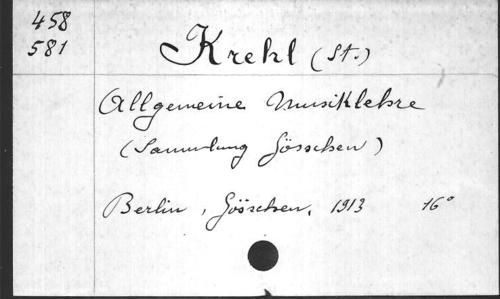 458
581
Krehl (St.)
Allgemeine Musiklehre
(Sammlung Gösschen)
Berlin, Göschen, 1913 16°